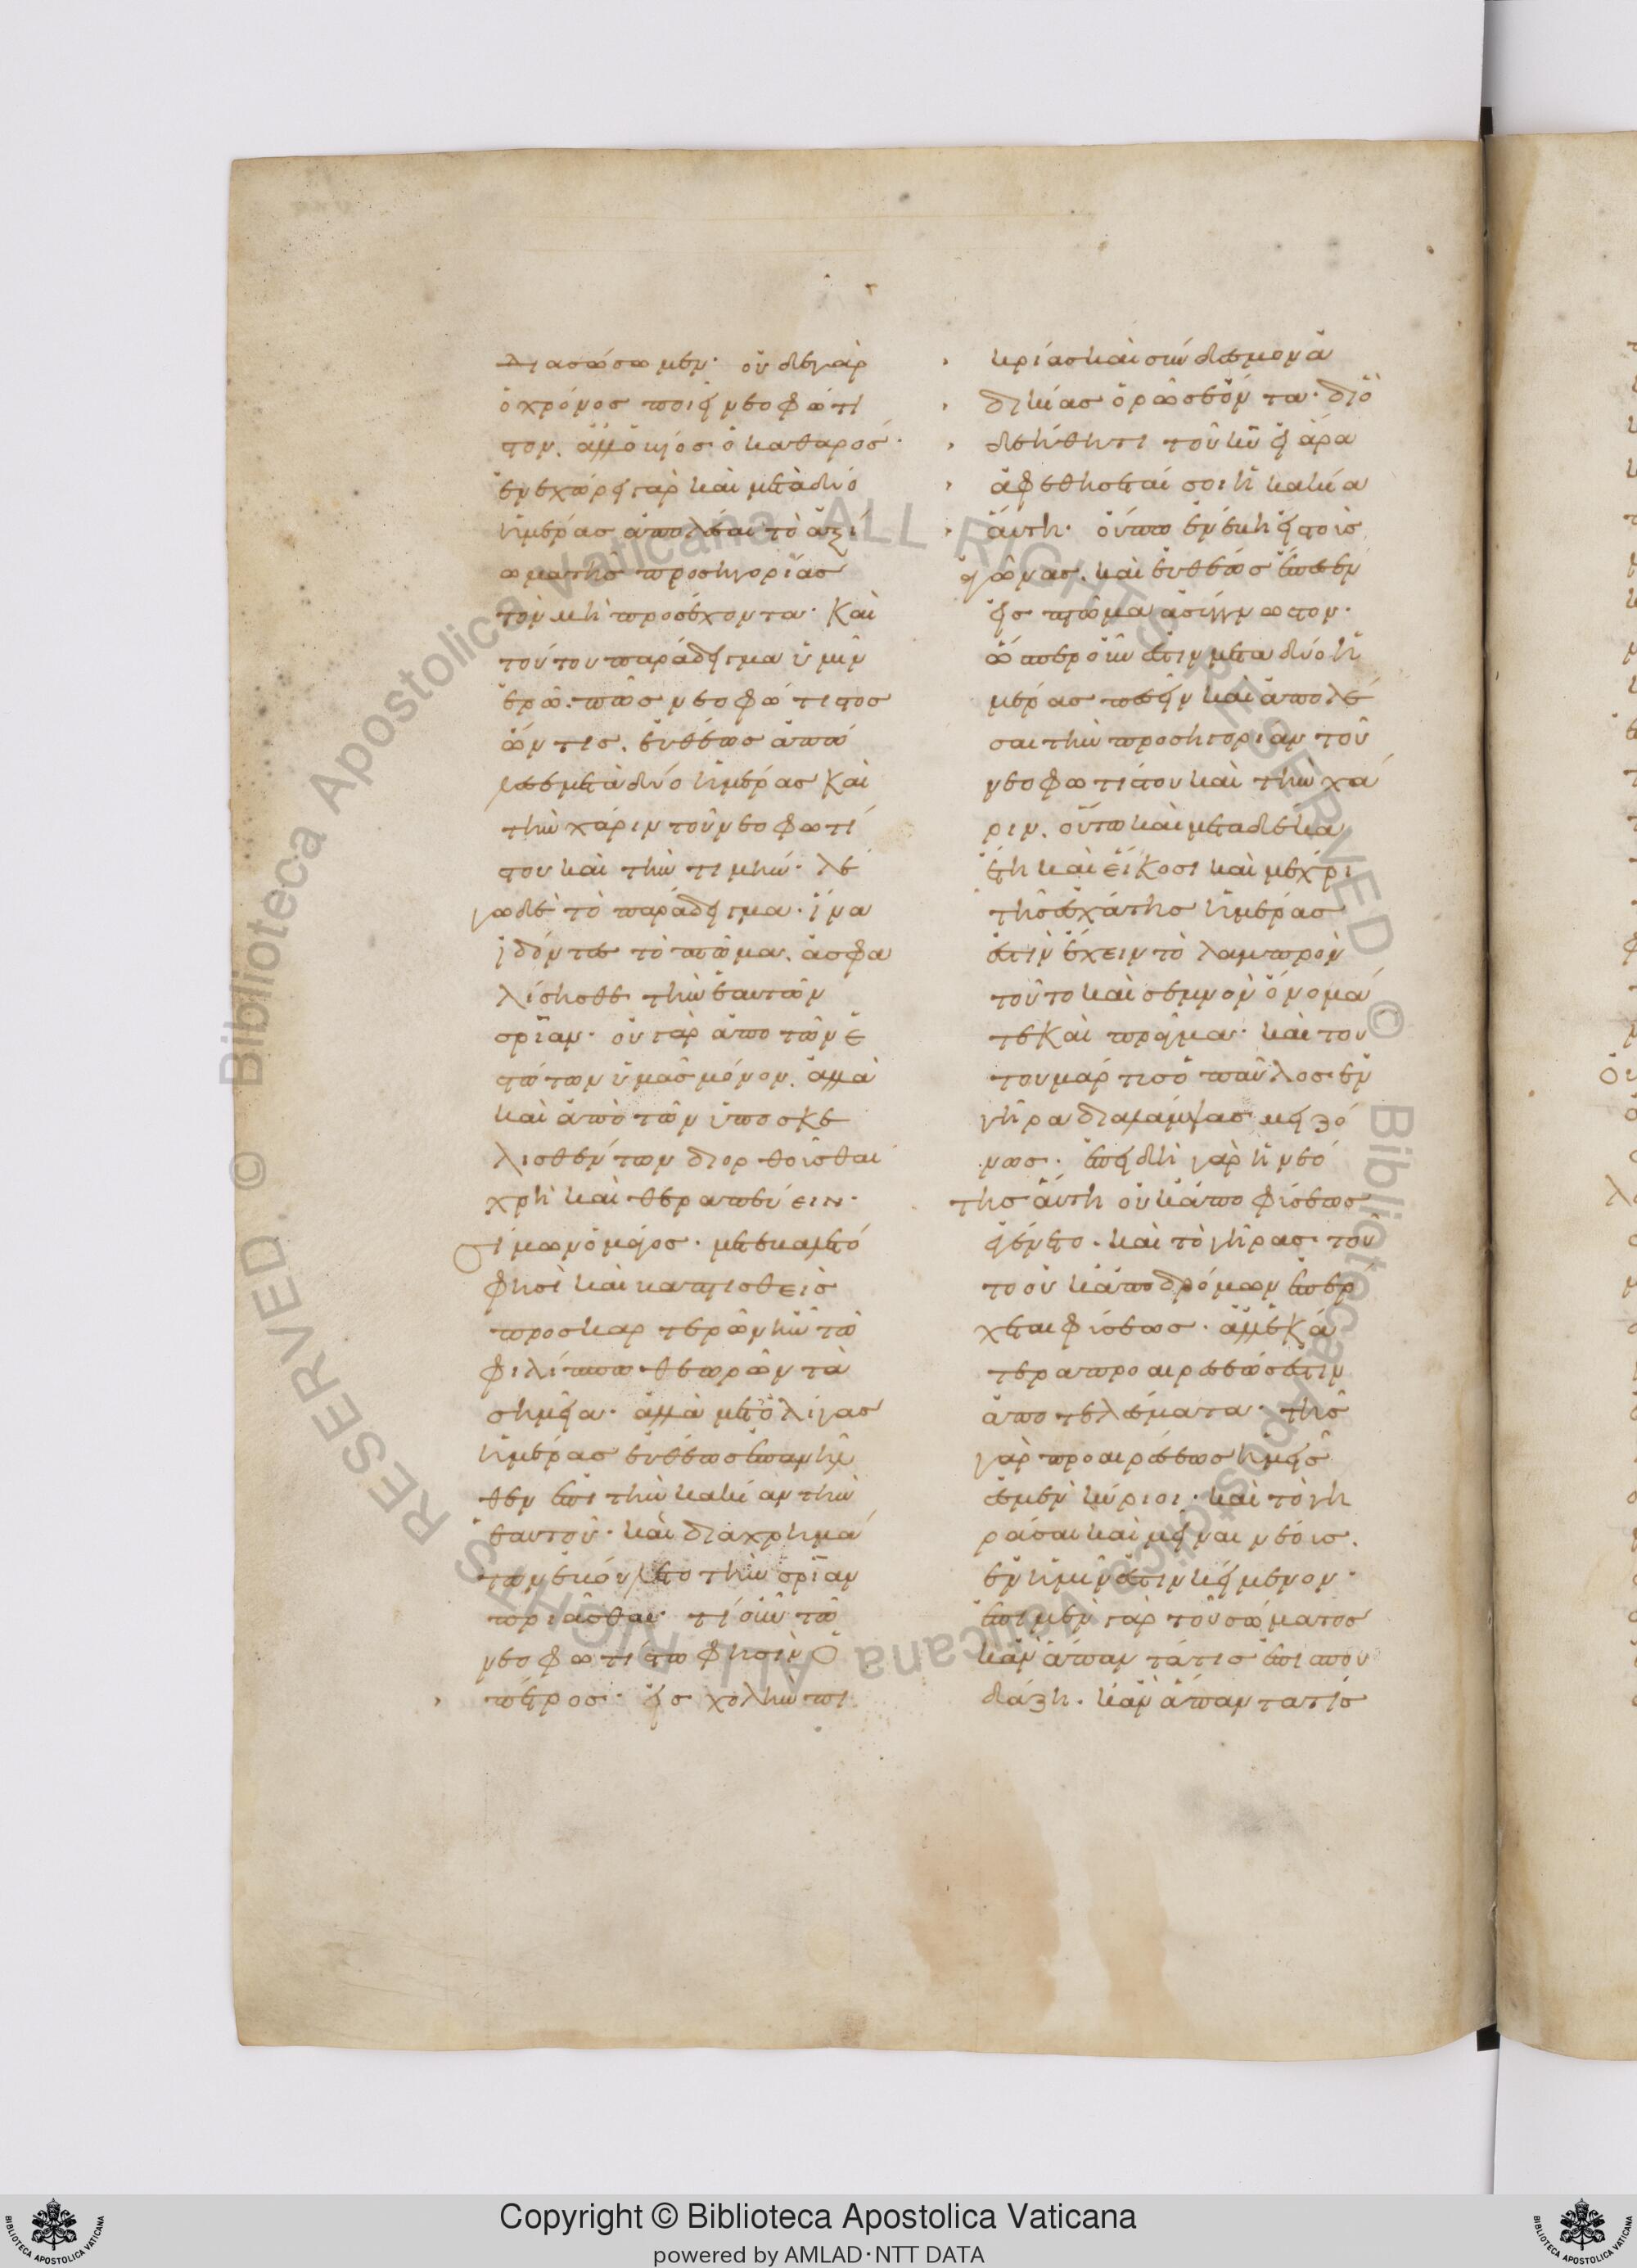 διασώσωμεν· οὐδὲ γὰρ
ὁ χρόνος ποιεῖ νεοφώτι
στον, ἀλλ' ὁ βίος ὁ καθαρός·
ἐνεχώρει γὰρ καὶ μετὰ δύο
ἡμέρας ἀπολέσαι τὸ ἀξί
ωμα τῆς προσηγορίας
τὸν μὴ προσέχοντα· καὶ
τούτου παράδειγμα ὑμῖν
ἐρῶ· πῶς νεοφώτιστος
ὤν τις, εὐθέως ἀπώ
λεσε μετὰ δύο ἡμέρας καὶ
τὴν χάριν τοῦ νεοφωτί
στου καὶ τὴν τιμήν· λέ
γω δὲ τὸ παράδειγμα· ἵνα
ἰδόντες τὸ πτῶμα, ἀσφα
λίσησθε τὴν ἑαυτῶν
σρίαν· οὐ γὰρ ἀπὸ τῶν ἑ
στώτων ὑμᾶς μόνον, ἀλλὰ
καὶ ἀπὸ τῶν ὑποσκε
λισθέντων διορθοῦσθαι
χρὴ καὶ θεραπεύειν·
Σίμων ὁ μάγος· μετεβάλετό
φησι καὶ βαπτισθεὶς
προσκαρτερῶν ἦν τῶ
φιλίππω θεωρῶν τὰ
σημεῖα· ἀλλὰ μετ' ὀλίγας
ἡμέρας εὐθέως ἐπανῆλ
θεν ἐπὶ τὴν κακίαν τὴν
ἑαυτοῦ· καὶ διὰ χρημά
των ἐβούλετο τὴν σρίαν
πρίασθαι· τί οὖν τῶ
νεοφωτίστω φησὶν ὁ
πέτρος· εἰς χολὴν πι
κρίας καὶ σύνδεσμον ἀ
δικίας ὁρῶ σε ὄντα· διὸ
δεήθητι τοῦ κυ εἰ ἄρα
ἀφεθήσεταί σοι ἡ κακία
αὕτη· οὔπω ἐνέβη εἰς τοὺς
ἀγῶνας, καὶ εὐθέως ἔπεσεν
εἰς πτῶμα ἀσύγγνωστον·
ὥσπερ οὖν ἔστιν μετὰ δύο ἡ
μέρας πεσεῖν καὶ ἀπολέ
σαι τὴν προσηγορίαν τοῦ
νεοφωτίστου καὶ τὴν χά
ριν, οὕτω καὶ μετὰ δέκα
ἔτη καὶ εἴκοσι καὶ μέχρι
τῆς ἐσχάτης ἡμέρας
ἔστιν ἔχειν τὸ λαμπρὸν
τοῦτο καὶ σεμνὸν ὄνομά
τε καὶ πρᾶγμα· καὶ τού
του μάρτυς ὁ παῦλος ἐν
γήρα διαλάμψας μειζό
νως· ἐπειδὴ γὰρ ἡ νεό
της αὕτη οὐκ ἀπὸ φύσεως
ἐγένετο· καὶ τὸ γῆρας τοῦ
το οὐκ ἀπὸ δρόμων ἐπέρ
χεται φύσεως· ἀλλ' ἑκά
τερα προαιρέσεώς ἐστιν
ἀποτελέσματα· τῆς
γὰρ προαιρέσεως ἡμεῖς
ἐσμεν κύριοι· καὶ τὸ γη
ράσαι καὶ μεῖναι νέοις,
ἐν ἡμῖν ἐστιν κείμενον·
ἐπὶ μὲν γὰρ τοῦ σώματος
κἂν ἅπαντά τις ἐπισπου
δάζη· κἂν ἅπαντά τις
Copyright © Biblioteca Apostolica Vaticana
powered by AMLAD·NTT DATA